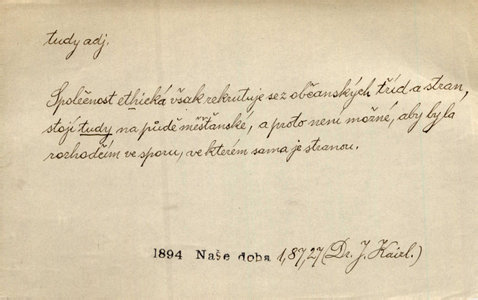 tudy adj.
Společnost ethická však rekrutuje se z občanských tříd a stran,
stojí tudy na půdě měšťanské, a proto není možné, aby byla
rozhodčím ve sporu, ve kterém sama je stranou.
1894 Naše doba 1,87,27 (Dr. J. Kaizl.)